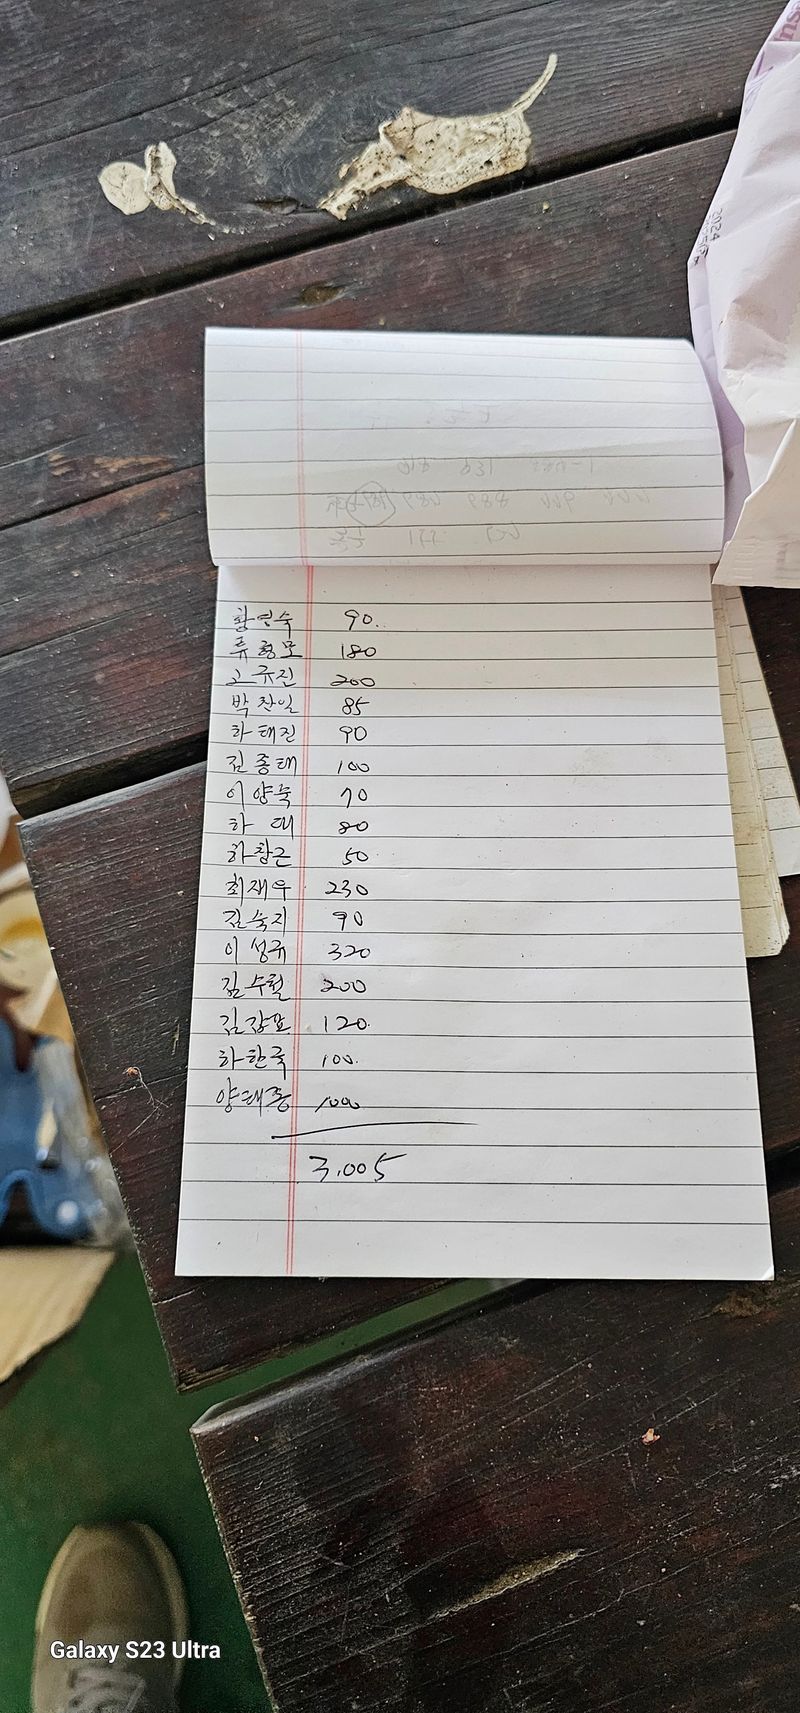 황영숙 90.
류형모 180
고규진 200
박찬일 85
하태진 90
김종태 100
이양숙 70
하 대 80
하창근 50
최재우 230
김숙지 90
이성규 320
김수철 200
김강호 120.
하한국 100.
양태종 1000
3,005
Galaxy S23 Ultra